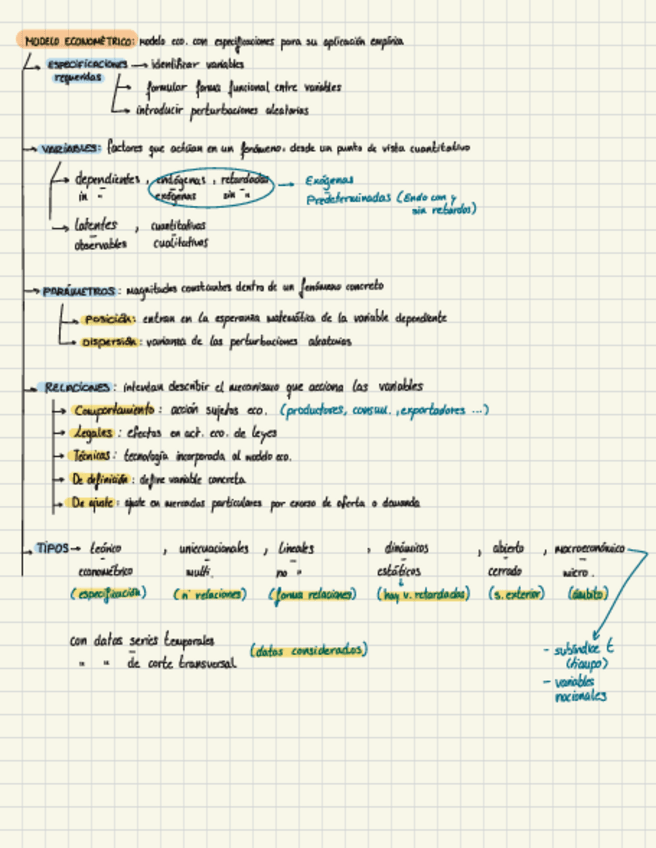 MODELO ECONOMÉTRICO: modelo eco. con especificaciones para su aplicación empírica
ESPECIFICACIONES → identificar variables
requeridas
formular forma funcional entre variables
introducir perturbaciones aleatorias
VARIABLES: factores que actúan en un fenómeno, desde un punto de vista cuantitativo
dependientes, endógenas, retardadas → Exógenas
in " exógenas sin " Predeterminadas (Endo con y
sin retardos)
latentes, cuantitativas
observables cualitativas
PARÁMETROS: magnitudes constantes dentro de un fenómeno concreto
POSICIÓN: entran en la esperanza matemática de la variable dependiente
DISPERSIÓN: varianza de las perturbaciones aleatorias
RELACIONES: intentan describir el mecanismo que acciona las variables
Comportamiento: acción sujetos eco. (productores, consum., exportadores ...)
Legales: efectos en act. eco. de leyes
Técnicas: tecnología incorporada al modelo eco.
De definición: define variable concreta
De ajuste: ajuste en mercados particulares por exceso de oferta o demanda
TIPOS → teórico, uniecuacionales, lineales, dinámicos, abierto, macroeconómico
econométrico multi. no " estáticos cerrado micro.
(especificación) (nº relaciones) (forma relaciones) (hay v. retardadas) (s. exterior) (ámbito)
con datos series temporales
" " de corte transversal (datos considerados)
- subíndice t
(tiempo)
- variables
nacionales